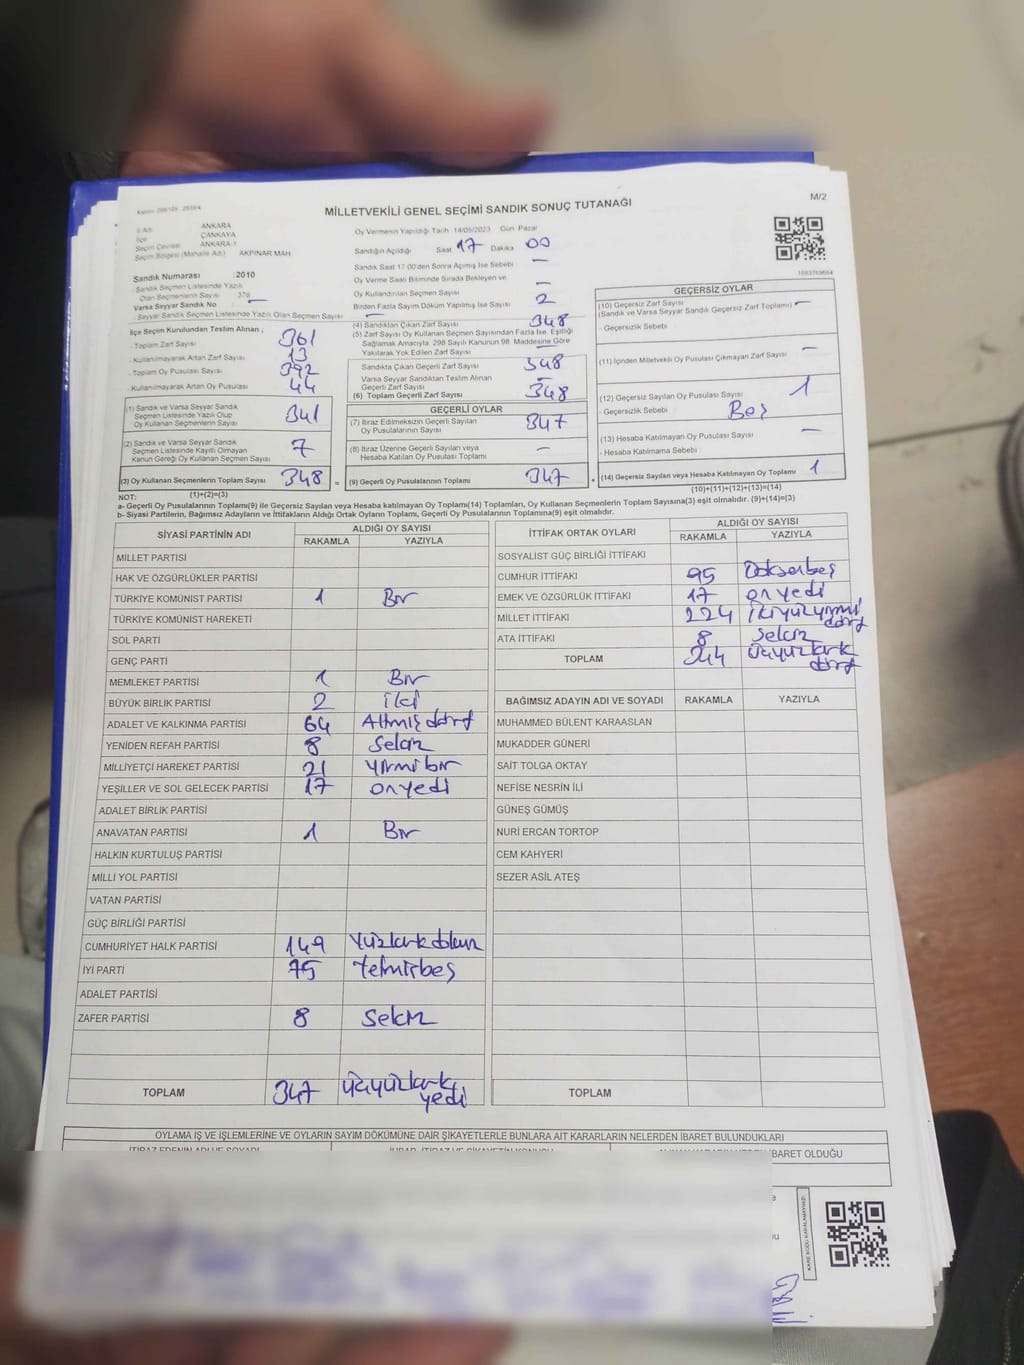 MİLLETVEKİLİ GENEL SEÇİMİ SANDIK SONUÇ TUTANAĞI
M/2
İl Adı ANKARA
İlçe ÇANKAYA
Seçim Çevresi ANKARA-1
Seçim Bölgesi (Mahalle Adı) AKPINAR MAH
Sandık Numarası :2010
Sandık Seçmen Listesinde Yazılı
Olan Seçmenlerin Sayısı 376
Varsa Seyyar Sandık No
Seyyar Sandık Seçmen Listesinde Yazılı Olan Seçmen Sayısı —
Oy Vermenin Yapıldığı Tarih 14/05/2023 Gün Pazar
Sandığın Açıldığı Saat 17 Dakika 00
Sandık Saat 17:00'den Sonra Açımış İse Sebebi —
Oy Verme Saati Bitiminde Sırada Bekleyen ve
Oy Kullandırılan Seçmen Sayısı —
Birden Fazla Sayım Döküm Yapılmış İse Sayısı 2
İlçe Seçim Kurulundan Teslim Alınan ;
- Toplam Zarf Sayısı 361
- Kullanılmayarak Artan Zarf Sayısı 13
- Toplam Oy Pusulası Sayısı 392
- Kullanılmayarak Artan Oy Pusulası 44
(1) Sandık ve Varsa Seyyar Sandık
Seçmen Listesinde Yazılı Olup
Oy Kullanan Seçmenlerin Sayısı 341
(2) Sandık ve Varsa Seyyar Sandık
Seçmen Listesinde Kayıtlı Olmayan
Kanun Gereği Oy Kullanan Seçmen Sayısı 7
(3) Oy Kullanan Seçmenlerin Toplam Sayısı 348 =
(1)+(2)=(3)
(4) Sandıktan Çıkan Zarf Sayısı 348
(5) Zarf Sayısı Oy Kullanan Seçmen Sayısından Fazla İse, Eşitliği
Sağlamak Amacıyla, 298 Sayılı Kanunun 98. Maddesine Göre
Yakılarak Yok Edilen Zarf Sayısı
Sandıkta Çıkan Geçerli Zarf Sayısı 348
Varsa Seyyar Sandıktan Teslim Alınan
Geçerli Zarf Sayısı —
(6) Toplam Geçerli Zarf Sayısı 348
GEÇERLİ OYLAR
(7) İtiraz Edilmeksizin Geçerli Sayılan
Oy Pusulalarının Sayısı 347
(8) İtiraz Üzerine Geçerli Sayılan veya
Hesaba Katılan Oy Pusulası Toplamı —
(9) Geçerli Oy Pusulalarının Toplamı 347 +
GEÇERSİZ OYLAR
(10) Geçersiz Zarf Sayısı
(Sandık ve Varsa Seyyar Sandık Geçersiz Zarf Toplamı) —
- Geçersizlik Sebebi
(11) İçinden Milletvekili Oy Pusulası Çıkmayan Zarf Sayısı —
(12) Geçersiz Sayılan Oy Pusulası Sayısı 1
- Geçersizlik Sebebi Boş
(13) Hesaba Katılmayan Oy Pusulası Sayısı —
- Hesaba Katılmama Sebebi
(14) Geçersiz Sayılan veya Hesaba Katılmayan Oy Toplamı 1
(10)+(11)+(12)+(13)=(14)
NOT:
a- Geçerli Oy Pusulalarının Toplamı(9) ile Geçersiz Sayılan veya Hesaba katılmayan Oy Toplamı(14) Toplamları, Oy Kullanan Seçmenlerin Toplam Sayısına(3) eşit olmalıdır. (9)+(14)=(3)
b- Siyasi Partilerin, Bağımsız Adayların ve İttifakların Aldığı Ortak Oyların Toplamı, Geçerli Oy Pusulalarının Toplamına(9) eşit olmalıdır.
SİYASİ PARTİNİN ADI ALDIĞI OY SAYISI
RAKAMLA YAZIYLA
MİLLET PARTİSİ
HAK VE ÖZGÜRLÜKLER PARTİSİ
TÜRKİYE KOMÜNİST PARTİSİ 1 Bir
TÜRKİYE KOMÜNİST HAREKETİ
SOL PARTİ
GENÇ PARTİ
MEMLEKET PARTİSİ 1 Bir
BÜYÜK BİRLİK PARTİSİ 2 iki
ADALET VE KALKINMA PARTİSİ 64 Altmış dört
YENİDEN REFAH PARTİSİ 8 Sekiz
MİLLİYETÇİ HAREKET PARTİSİ 21 yirmi bir
YEŞİLLER VE SOL GELECEK PARTİSİ 17 onyedi
ADALET BİRLİK PARTİSİ
ANAVATAN PARTİSİ 1 Bir
HALKIN KURTULUŞ PARTİSİ
MİLLİ YOL PARTİSİ
VATAN PARTİSİ
GÜÇ BİRLİĞİ PARTİSİ
CUMHURİYET HALK PARTİSİ 149 Yüzkırkdokuz
İYİ PARTİ 75 Yetmişbeş
ADALET PARTİSİ
ZAFER PARTİSİ 8 Sekiz
TOPLAM 347 üçyüzkırk
yedi
İTTİFAK ORTAK OYLARI ALDIĞI OY SAYISI
RAKAMLA YAZIYLA
SOSYALİST GÜÇ BİRLİĞİ İTTİFAKI
CUMHUR İTTİFAKI 95 Doksanbeş
EMEK VE ÖZGÜRLÜK İTTİFAKI 17 onyedi
MİLLET İTTİFAKI 224 ikiyüzyirmi
dört
ATA İTTİFAKI 8 Sekiz
TOPLAM 344 üçyüzkırk
dört
BAĞIMSIZ ADAYIN ADI VE SOYADI RAKAMLA YAZIYLA
MUHAMMED BÜLENT KARAASLAN
MUKADDER GÜNERİ
SAİT TOLGA OKTAY
NEFİSE NESRİN İLİ
GÜNEŞ GÜMÜŞ
NURİ ERCAN TORTOP
CEM KAHYERİ
SEZER ASİL ATEŞ
TOPLAM
OYLAMA İŞ VE İŞLEMLERİNE VE OYLARIN SAYIM DÖKÜMÜNE DAİR ŞİKAYETLERLE BUNLARA AİT KARARLARIN NELERDEN İBARET BULUNDUKLARI
İBARET OLDUĞU
KARE KODU KARALAMAYINIZ!